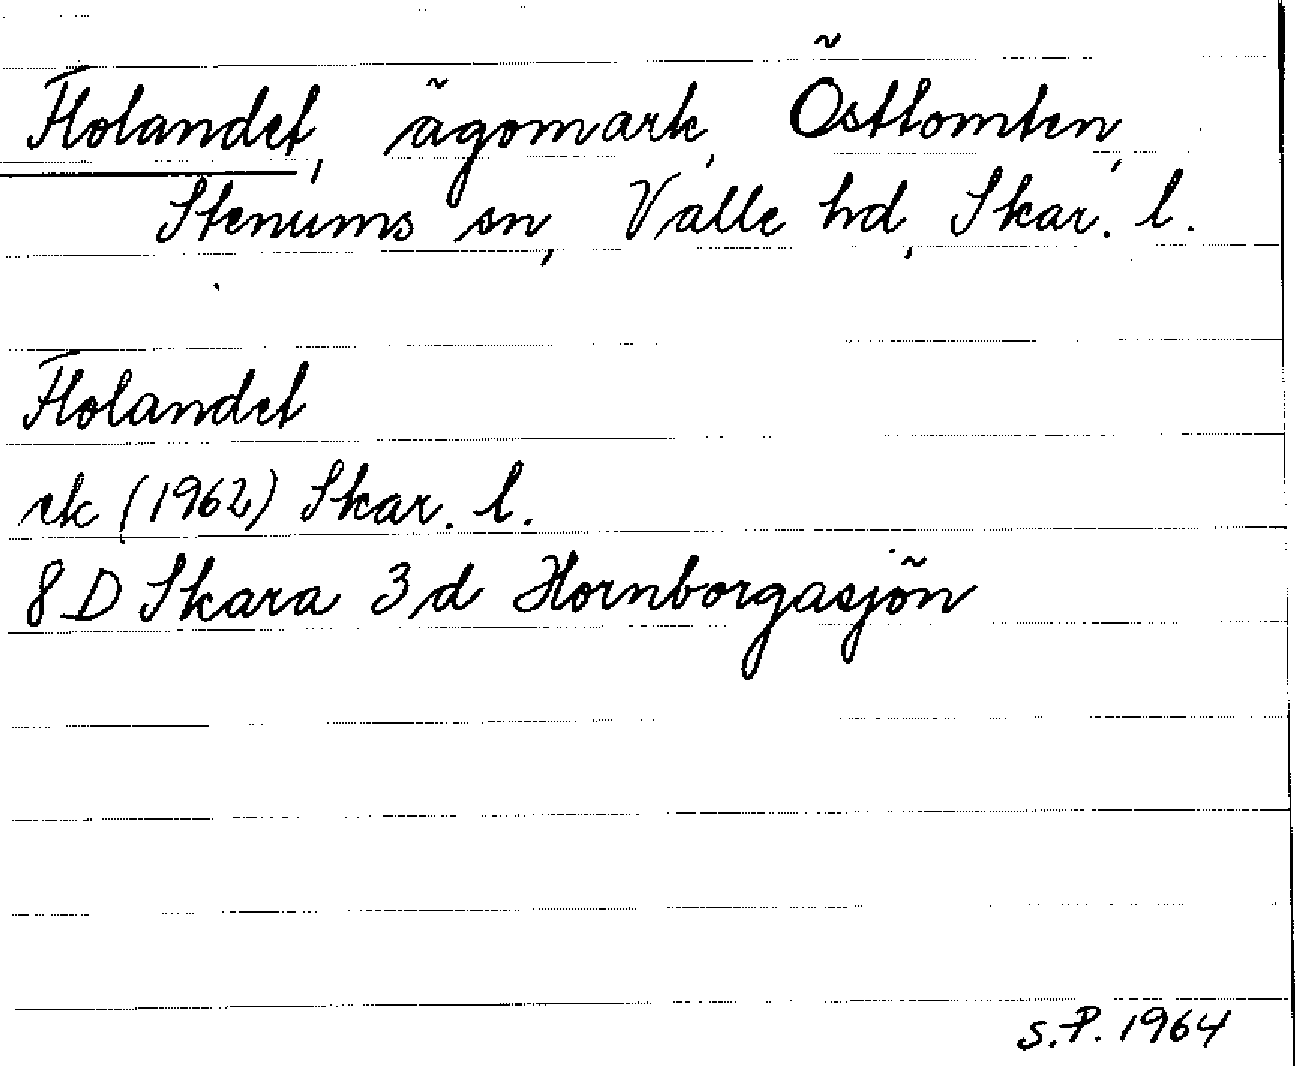 Flolandet, ägomark, Östtomten,
Stenums sn, Valle hd, Skar. l.
Flolandet
ek (1962) Skar. l.
8 D Skara 3 d Hornborgasjön
S.P. 1964